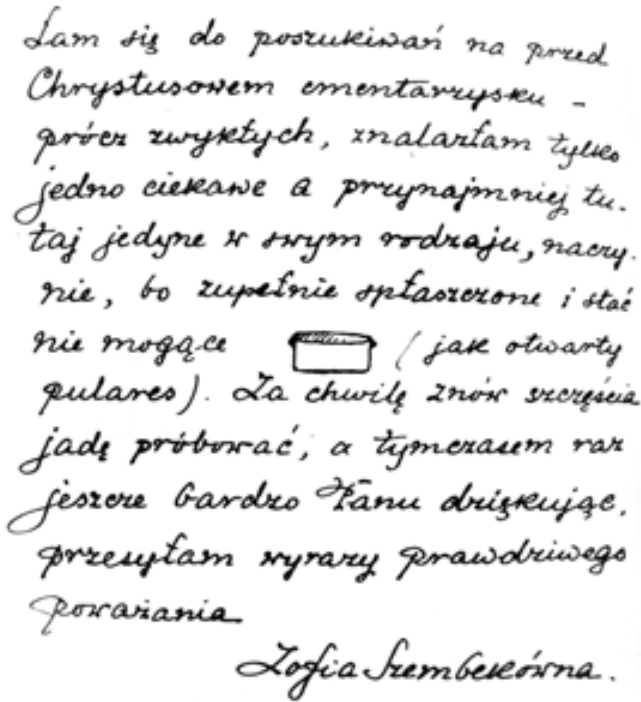 łam się do poszukiwań na przed
Chrystusowem cmentarzysku -
prócz zwykłych, znalazłam tylko
jedno ciekawe a przynajmniej tu-
taj jedyne w swym rodzaju, naczy-
nie, bo zupełnie spłaszczone i stać
nie mogące ( jak otwarty
pulares). Za chwilę znów szczęścia
jadę próbować, a tymczasem raz
jeszcze bardzo Panu dziękując,
przesyłam wyrazy prawdziwego
poważania
Zofia Szembekówna.